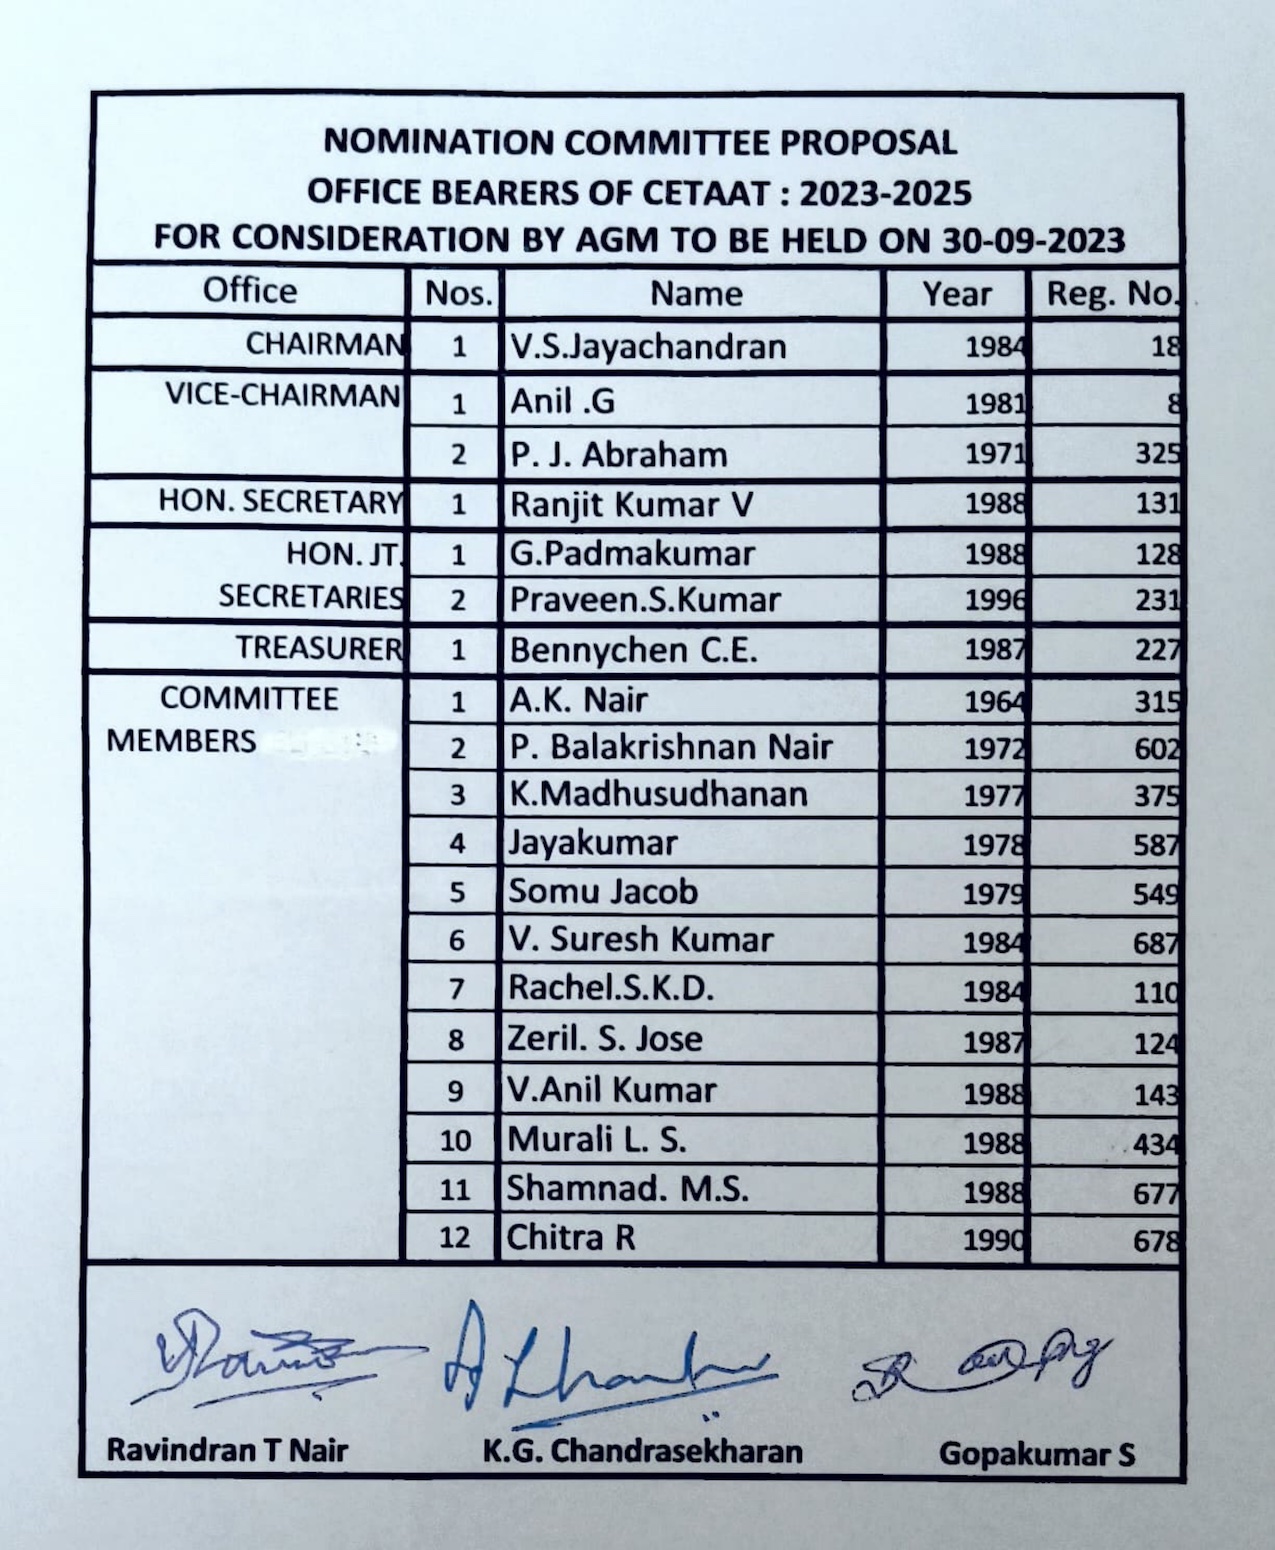 NOMINATION COMMITTEE PROPOSAL
OFFICE BEARERS OF CETAAT : 2023-2025
FOR CONSIDERATION BY AGM TO BE HELD ON 30-09-2023
Office Nos. Name Year Reg. No.
CHAIRMAN 1 V.S.Jayachandran 1984 18
VICE-CHAIRMAN 1 Anil .G 1981 8
2 P. J. Abraham 1971 325
HON. SECRETARY 1 Ranjit Kumar V 1988 131
HON. JT. 1 G.Padmakumar 1988 128
SECRETARIES 2 Praveen.S.Kumar 1996 231
TREASURER 1 Bennychen C.E. 1987 227
COMMITTEE 1 A.K. Nair 1964 315
MEMBERS 2 P. Balakrishnan Nair 1972 602
3 K.Madhusudhanan 1977 375
4 Jayakumar 1978 587
5 Somu Jacob 1979 549
6 V. Suresh Kumar 1984 687
7 Rachel.S.K.D. 1984 110
8 Zeril. S. Jose 1987 124
9 V.Anil Kumar 1988 143
10 Murali L. S. 1988 434
11 Shamnad. M.S. 1988 677
12 Chitra R 1990 678
Ravindran T Nair K.G. Chandrasekharan Gopakumar S